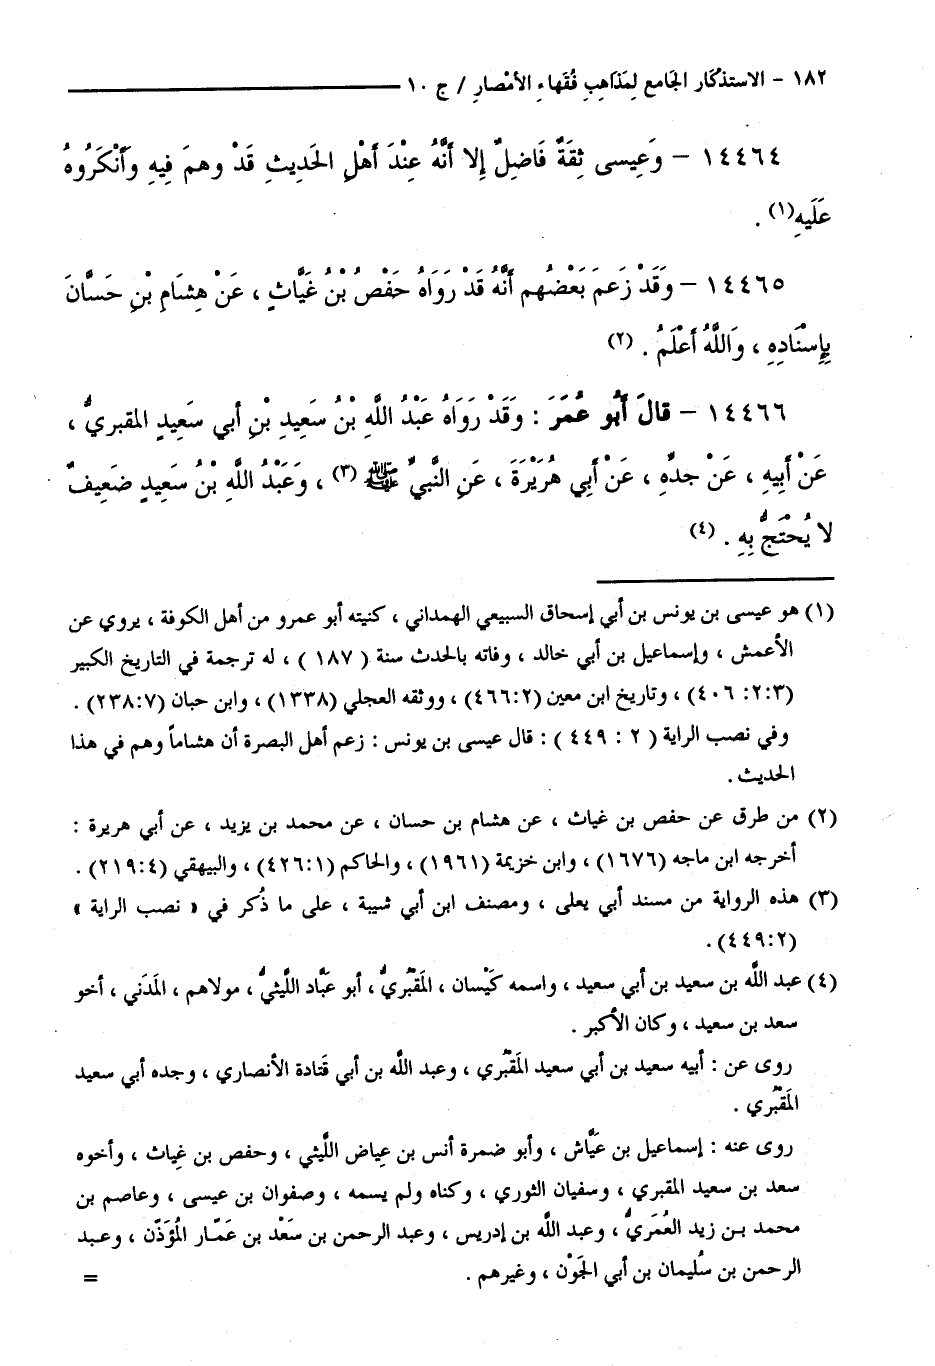 ١٨٢ - الاستذكار الجامع لِمَذاهِبِ فُقَهاءِ الأمْصارِ / ج ١٠
١٤٤٦٤ - وَعِيسى ثِقَةٌ فَاضِلٌ إِلا أَنَّهُ عِنْدَ أَهْلِ الحَدِيثِ قَدْ وهمَ فِيهِ وَأَنْكَرُوهُ
عَلَيهِ(١) .
١٤٤٦٥ - وَقَدْ زَعَمَ بَعْضُهم أَنَّهُ قَدْ رَوَاهُ حَفْص ُبْنُ غَيَّاثٍ ، عَنْ هِشَامِ بْنِ حَسَّانَ
بِإِسْنَادِهِ ، وَاللَّهُ أعْلَمُ . (٢)
١٤٤٦٦ - قالَ أَبُو عُمَرَ : وَقَدْ رَوَاهُ عَبْدُ اللَّهِ بْنُ سَعِيدِ بْنِ أبي سَعِيدٍ المقبريُّ ،
عَنْ أَبِيهِ ، عَنْ جدِّهِ ، عَنْ أَبِي هُرَيْرَةَ ، عَنِ النَّبيِّ ﷺ (٣) ، وَعَبْدُ اللَّهِ بْنُ سَعِيدٍ ضَعِيفٌ
لا يُحْتَجُّ بِهِ . (٤)
(١) هو عيسى بن يونس بن أبي إسحاق السبيعي الهمداني ، كنيته أبو عمرو من أهل الكوفة ، يروي عن
الأعمش ، وإسماعيل بن أبي خالد ، وفاته بالحدث سنة ( ١٨٧ ) ، له ترجمة في التاريخ الكبير
(٢:٣: ٤٠٦) ، وتاريخ ابن معين (٤٦٦:٢) ، ووثقه العجلي (١٣٣٨) ، وابن حبان (٢٣٨:٧) .
وفي نصب الراية ( ٢ : ٤٤٩ ) : قال عيسى بن يونس : زعم أهل البصرة أن هشاماً وهم في هذا
الحديث .
(٢) من طرق عن حفص بن غياث ، عن هشام بن حسان ، عن محمد بن يزيد ، عن أبي هريرة :
أخرجه ابن ماجه (١٦٧٦) ، وابن خزيمة (١٩٦١) ، والحاكم (٤٢٦:١) ، والبيهقي (٢١٩:٤) .
(٣) هذه الرواية من مسند أبي يعلى ، ومصنف ابن أبي شيبة ، على ما ذُكر في « نصب الراية »
(٤٤٩:٢) .
(٤) عبد اللَّه بن سعيد بن أبي سعيد ، واسمه كَيْسان ، المَقْبُريُّ ، أبو عبَّاد اللَّيثيُّ ، مولاهم ، المَدَني ، أخو
سعد بن سعيد ، وكان الأكبر .
روى عن : أبيه سعيد بن أبي سعيد المَقْبُري ، وعبد اللَّه بن أبي قَتادة الأنصاري ، وجده أبي سعيد
المَقْبُري .
روى عنه : إسماعيل بن عيَّاش ، وأبو ضمرة أنس بن عِياض اللَّيثي ، وحفص بن غِياث ، وأخوه
سعد بن سعيد المقبري ، وسفيان الثوري ، وكناه ولم يسمه ، وصفوان بن عيسى ، وعاصم بن
محمد بـن زيد العُمَريُّ ، وعبد اللَّه بن إدريس ، وعبد الرحمن بن سَعْد بن عَمّـار المُؤَذّن ، وعـبد
الرحمن بن سُليمان بن أبي الجَوْن ، وغيرهم . =